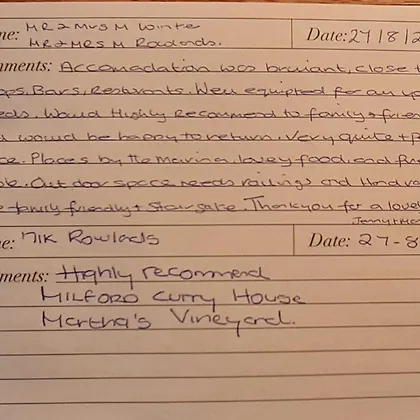 ne: MR & Mrs M Winte
MR & MRS M Rowlands. Date: 27/8/2
mments: Accomadation was brilliant, close t
ops, Bars, Resturants. Well equipted for all yo
eds. Would Highly Recommend to family + frie
d would be happy to return. Very quite + P
ce. Places by the marina, lovey food, and fri
ble. Out door space needs railings and Handra
e family friendly + Stair gate. Thankyou for a lovel
Jenny +
e: MK Rowlads Date: 27-8
ments: Highly recommend
MILFORD Curry House
Martha's Vineyard.